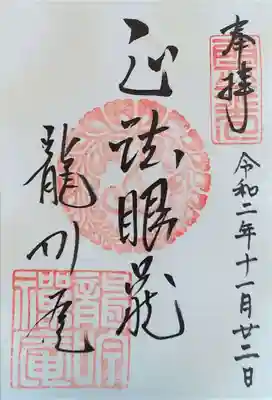 奉拝
令和二年十一月廿二日
正法眼蔵
龍吟庵